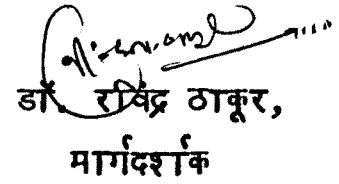 डॉ. रविंद्र ठाकूर,
मार्गदर्शक